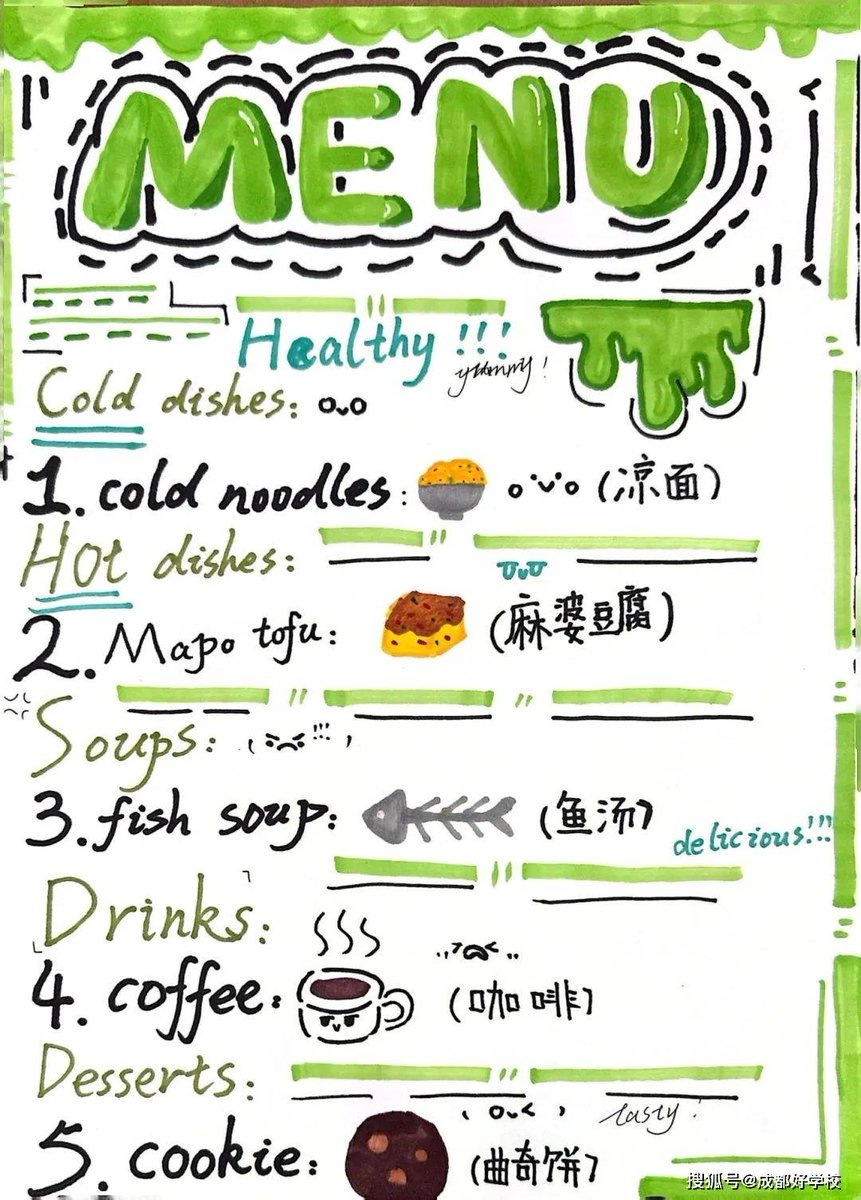 MENU
Healthy!!!
yummy!
Cold dishes:
1. cold noodles: (凉面)
Hot dishes:
2. Mapo tofu: (麻婆豆腐)
Soups: !!!
3. fish soup: (鱼汤)
delicious!!!
Drinks:
4. coffee: (咖啡)
Desserts:
tasty!
5. cookie: (曲奇饼)
搜狐号@成都好学校